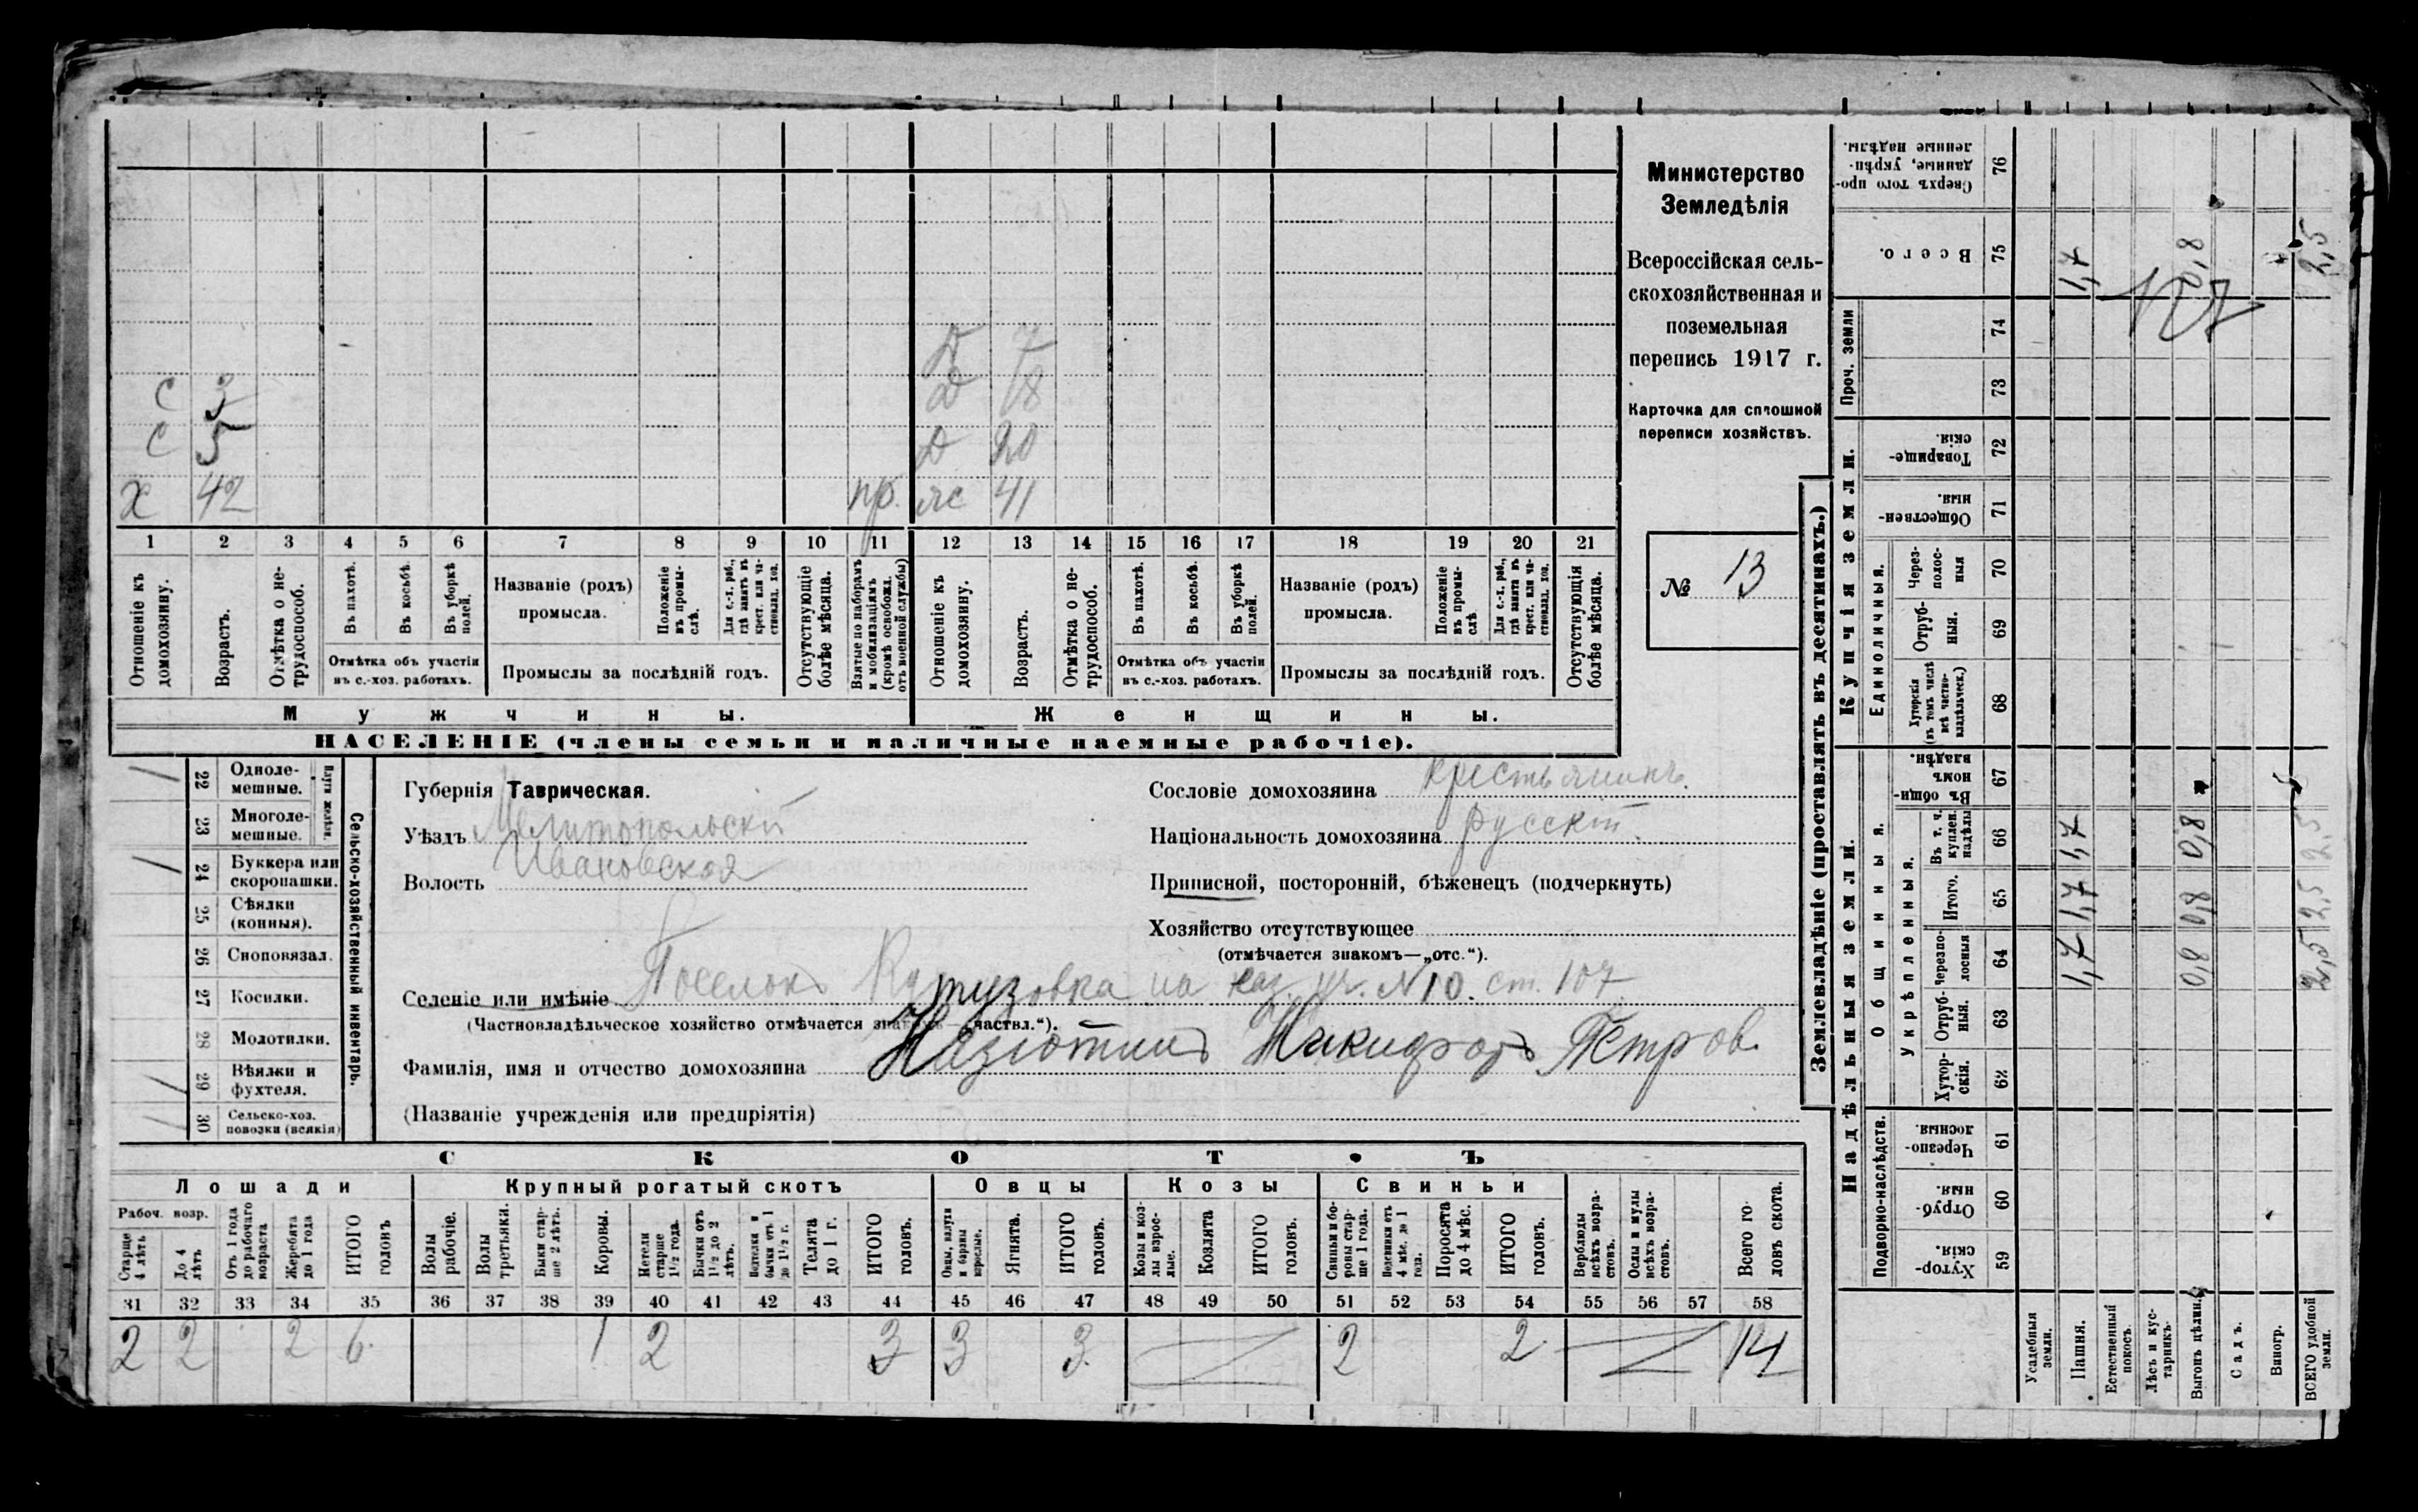 Министерство
Земледѣлія
Всероссійская сель-
скохозяйственная и
поземельная
перепись 1917 г.
Карточка для сплошной
переписи хозяйствъ.
№ 13
Д 7
С 3 Д 18
С 5 Д 20
Х 42 пр. жс 41
1 2 3 4 5 6 7 8 9 10 11 12 13 14 15 16 17 18 19 20 21
Отношеніе къ домохозяину.
Возрастъ.
Отмѣтка о не-трудоспособ.
Въ пахотѣ.
Въ косьбѣ.
Въ уборкѣ полей.
Отмѣтка объ участіи въ с.-хоз. работахъ.
Названіе (родъ) промысла.
Положеніе въ промы-слѣ.
Для с.-х. раб., гдѣ занятъ въ крест. или ча-стновлад. хоз.
Промыслы за послѣдній годъ.
Отсутствующіе болѣе мѣсяца.
Взятые по наборамъ и мобилизаціямъ (кромѣ освобожд. отъ военной службы)
Отношеніе къ домохозяину.
Возрастъ.
Отмѣтка о не-трудоспособ.
Въ пахотѣ.
Въ косьбѣ.
Въ уборкѣ полей.
Отмѣтка объ участіи въ с.-хоз. работахъ.
Названіе (родъ) промысла.
Положеніе въ промы-слѣ
Для с.-х. раб., гдѣ занята въ крест. или ча-стновлад. хоз.
Промыслы за послѣдній годъ.
Отсутствующія болѣе мѣсяца.
Мужчины. Женщины.
НАСЕЛЕНІЕ (члены семьи и наличные наемные рабочіе).
Сельско-хозяйственный инвентарь.
22 Одноле-мешные.
23 Многоле-мешные.
24 Буккера или скоропашки.
25 Сѣялки (конныя).
26 Сноповязал.
27 Косилки.
28 Молотилки.
29 Вѣялки и фухтеля.
30 Сельско-хоз. повозки (всякія)
Губернія Таврическая.
Уѣздъ Мелитопольскій
Волость Ивановская
Сословіе домохозяина крестьянинъ.
Національность домохозяина русскій.
Приписной, посторонній, бѣженецъ (подчеркнуть)
Хозяйство отсутствующее
(отмѣчается знакомъ—„отс.“).
Селеніе или имѣніе Поселокъ Кутузовка на каз. уч. N 10. ст. 107
(Частновладѣльческое хозяйство отмѣчается знакомъ „частвл.“).
Фамилія, имя и отчество домохозяина Никифоръ Петров.
(Названіе учрежденія или предпріятія)
СКОТЪ
Лошади Крупный рогатый скотъ Овцы Козы Свиньи
Рабоч. возр.
Старше 4 лѣтъ
До 4 лѣтъ
Отъ 1 года до рабочаго возраста
Жеребята до 1 года
ИТОГО головъ
Волы рабочіе.
Волы третьяки.
Быки стар-ше 2 лѣтъ.
Коровы.
Нетели старше 1½ года.
Бычки отъ 1½ до 2 лѣтъ.
Телята до 1 г.
ИТОГО головъ.
Ягнята.
ИТОГО головъ.
Козы и коз-лы взрос-лые.
Козлята
ИТОГО головъ.
Свиньи и бо-ровы стар-ше 1 года.
Поросята до 4 мѣс.
ИТОГО головъ.
Верблюды всѣхъ возра-стовъ.
Ослы и мулы всѣхъ возра-стовъ.
Всего го-ловъ скота.
31 32 33 34 35 36 37 38 39 40 41 42 43 44 45 46 47 48 49 50 51 52 53 54 55 56 57 58
2 2 2 6 1 2 3 3 3 2 2 14
Землевладѣніе (проставлять въ десятинахъ.)
Надѣльныя земли. Купчія земли. Проч. земли
Подворно-наслѣдств. Общинныя. Укрѣпленныя. Единоличныя.
59 Хутор-скія.
60 Отруб-ныя.
61 Черезпо-лосныя.
62 Хутор-скія.
63 Отруб-ныя.
64 Черезпо-лосныя
65 Итого.
66 Въ т. ч. куплен. надѣлы
67 Въ общи-номъ владѣн.
68 Хуторскія (въ томъ числѣ всѣ частно-владѣльческ.)
69 Отруб-ныя.
70 Через-полос-ныя
71 Обществен-ныя.
72 Товарище-скія.
73
74
75 Всего.
76 Сверхъ того про-данные, укрѣп-ленные надѣлы.
Усадебныя земли.
Пашня. 1,7 1,7 1,7 1,7
Естественный покосъ.
Лѣсъ и кус-тарникъ.
Выгонъ цѣлин. 0,8 0,8 0,8 0,8
Садъ.
Виногр.
ВСЕГО удобной земли. 2,5 2,5 2,5 2,5